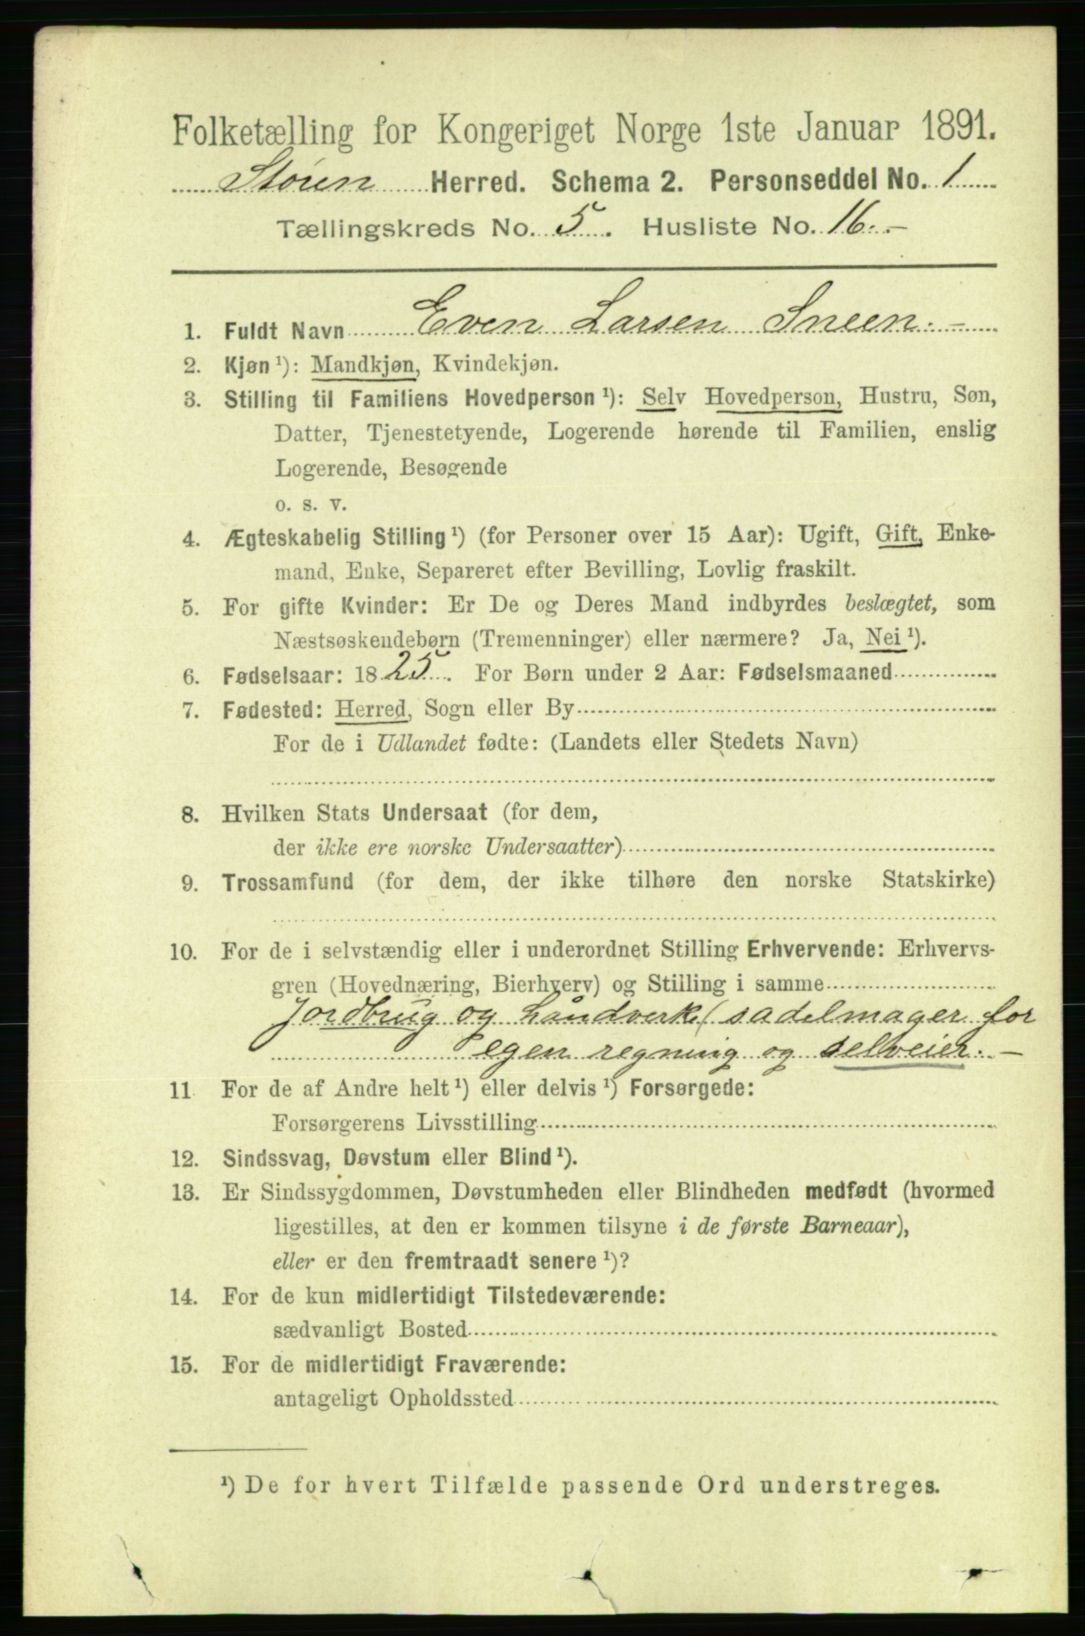 Folketælling for Kongeriget Norge 1ste Januar 1891.
Støren Herred. Schema 2. Personseddel No. 1
Tællingskreds No. 5. Husliste No. 16.-
1. Fuldt Navn Even Larsen Sneen.-
2. Kjøn ¹): Mandkjøn, Kvindekjøn.
3. Stilling til Familiens Hovedperson ¹): Selv Hovedperson, Hustru, Søn,
Datter, Tjenestetyende, Logerende hørende til Familien, enslig
Logerende, Besøgende
o. s. v.
4. Ægteskabelig Stilling ¹) (for Personer over 15 Aar): Ugift, Gift, Enke-
mand, Enke, Separeret efter Bevilling, Lovlig fraskilt.
5. For gifte Kvinder: Er De og Deres Mand indbyrdes beslægtet, som
Næstsøskendebørn (Tremenninger) eller nærmere? Ja, Nei ¹).
6. Fødselsaar: 1825. For Børn under 2 Aar: Fødselsmaaned
7. Fødested: Herred, Sogn eller By
For de i Udlandet fødte: (Landets eller Stedets Navn)
8. Hvilken Stats Undersaat (for dem,
der ikke ere norske Undersaatter)
9. Trossamfund (for dem, der ikke tilhøre den norske Statskirke)
10. For de i selvstændig eller i underordnet Stilling Erhvervende: Erhvervs-
gren (Hovednæring, Bierhverv) og Stilling i samme
Jordbrug og håndverk (sadelmager for
egen regning og selveier.-
11 For de af Andre helt ¹) eller delvis ¹) Forsørgede:
Forsørgerens Livsstilling
12. Sindssvag, Døvstum eller Blind ¹).
13. Er Sindssygdommen, Døvstumheden eller Blindheden medfødt (hvormed
ligestilles, at den er kommen tilsyne i de første Barneaar),
eller er den fremtraadt senere ¹)?
14. For de kun midlertidigt Tilstedeværende:
sædvanligt Bosted
15. For de midlertidigt Fraværende:
antageligt Opholdssted
¹) De for hvert Tilfælde passende Ord understreges.